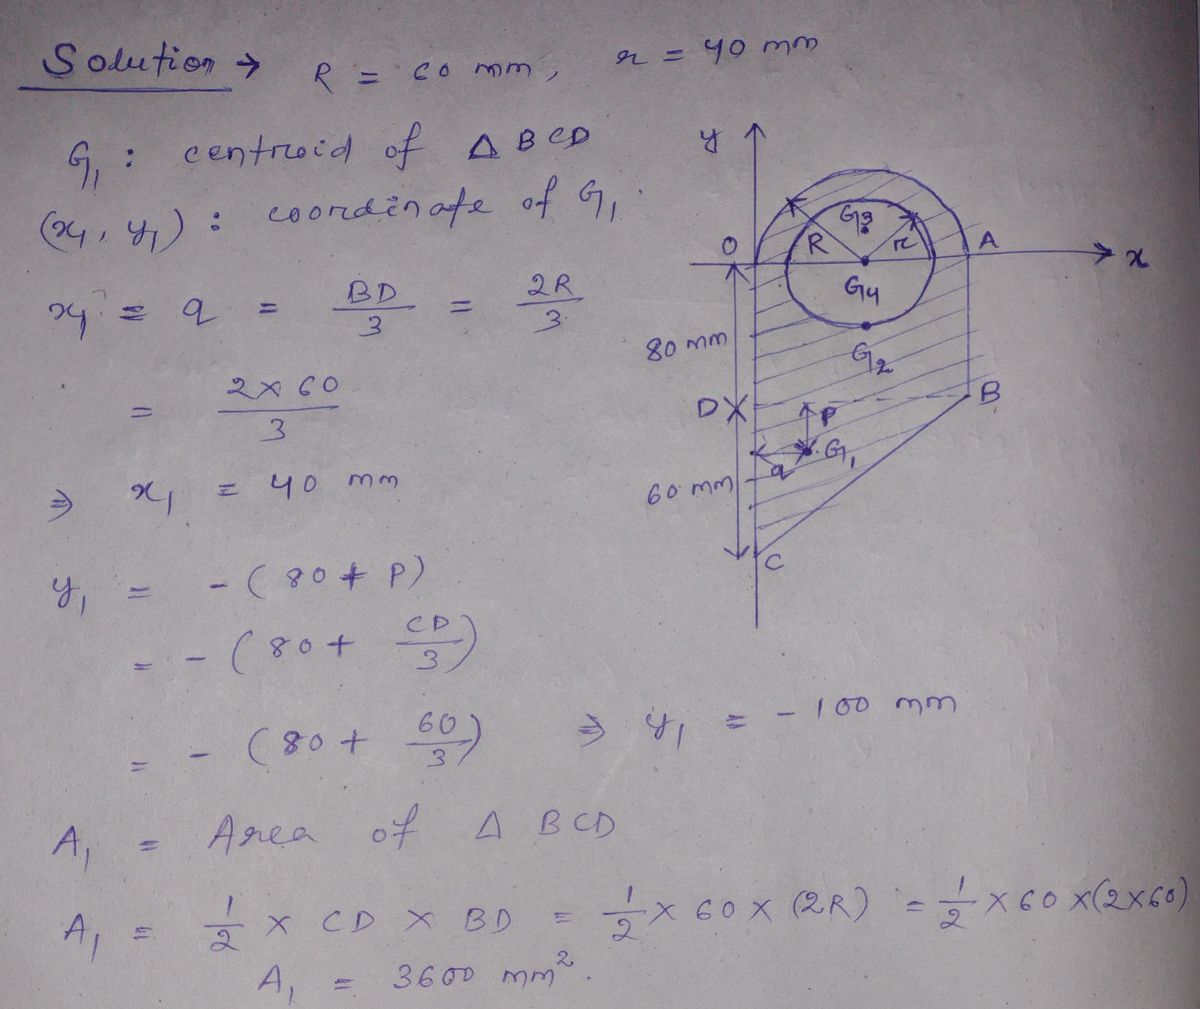 Solution → R = 60 mm, r = 40 mm
G₁ : centroid of Δ BCD
(x₁, y₁) : coordinate of G₁.
x₁ = q = BD/3 = 2R/3
= 2×60/3
⇒ x₁ = 40 mm
y₁ = -(80 + P)
= -(80 + CD/3)
= -(80 + 60/3) ⇒ y₁ = -100 mm
A₁ = Area of Δ BCD
A₁ = 1/2 × CD × BD = 1/2 × 60 × (2R) = 1/2 × 60 × (2×60)
A₁ = 3600 mm².
y
G₃
O R r A x
G₄
80 mm
G₂
D B
P
G₁
q
60 mm
C